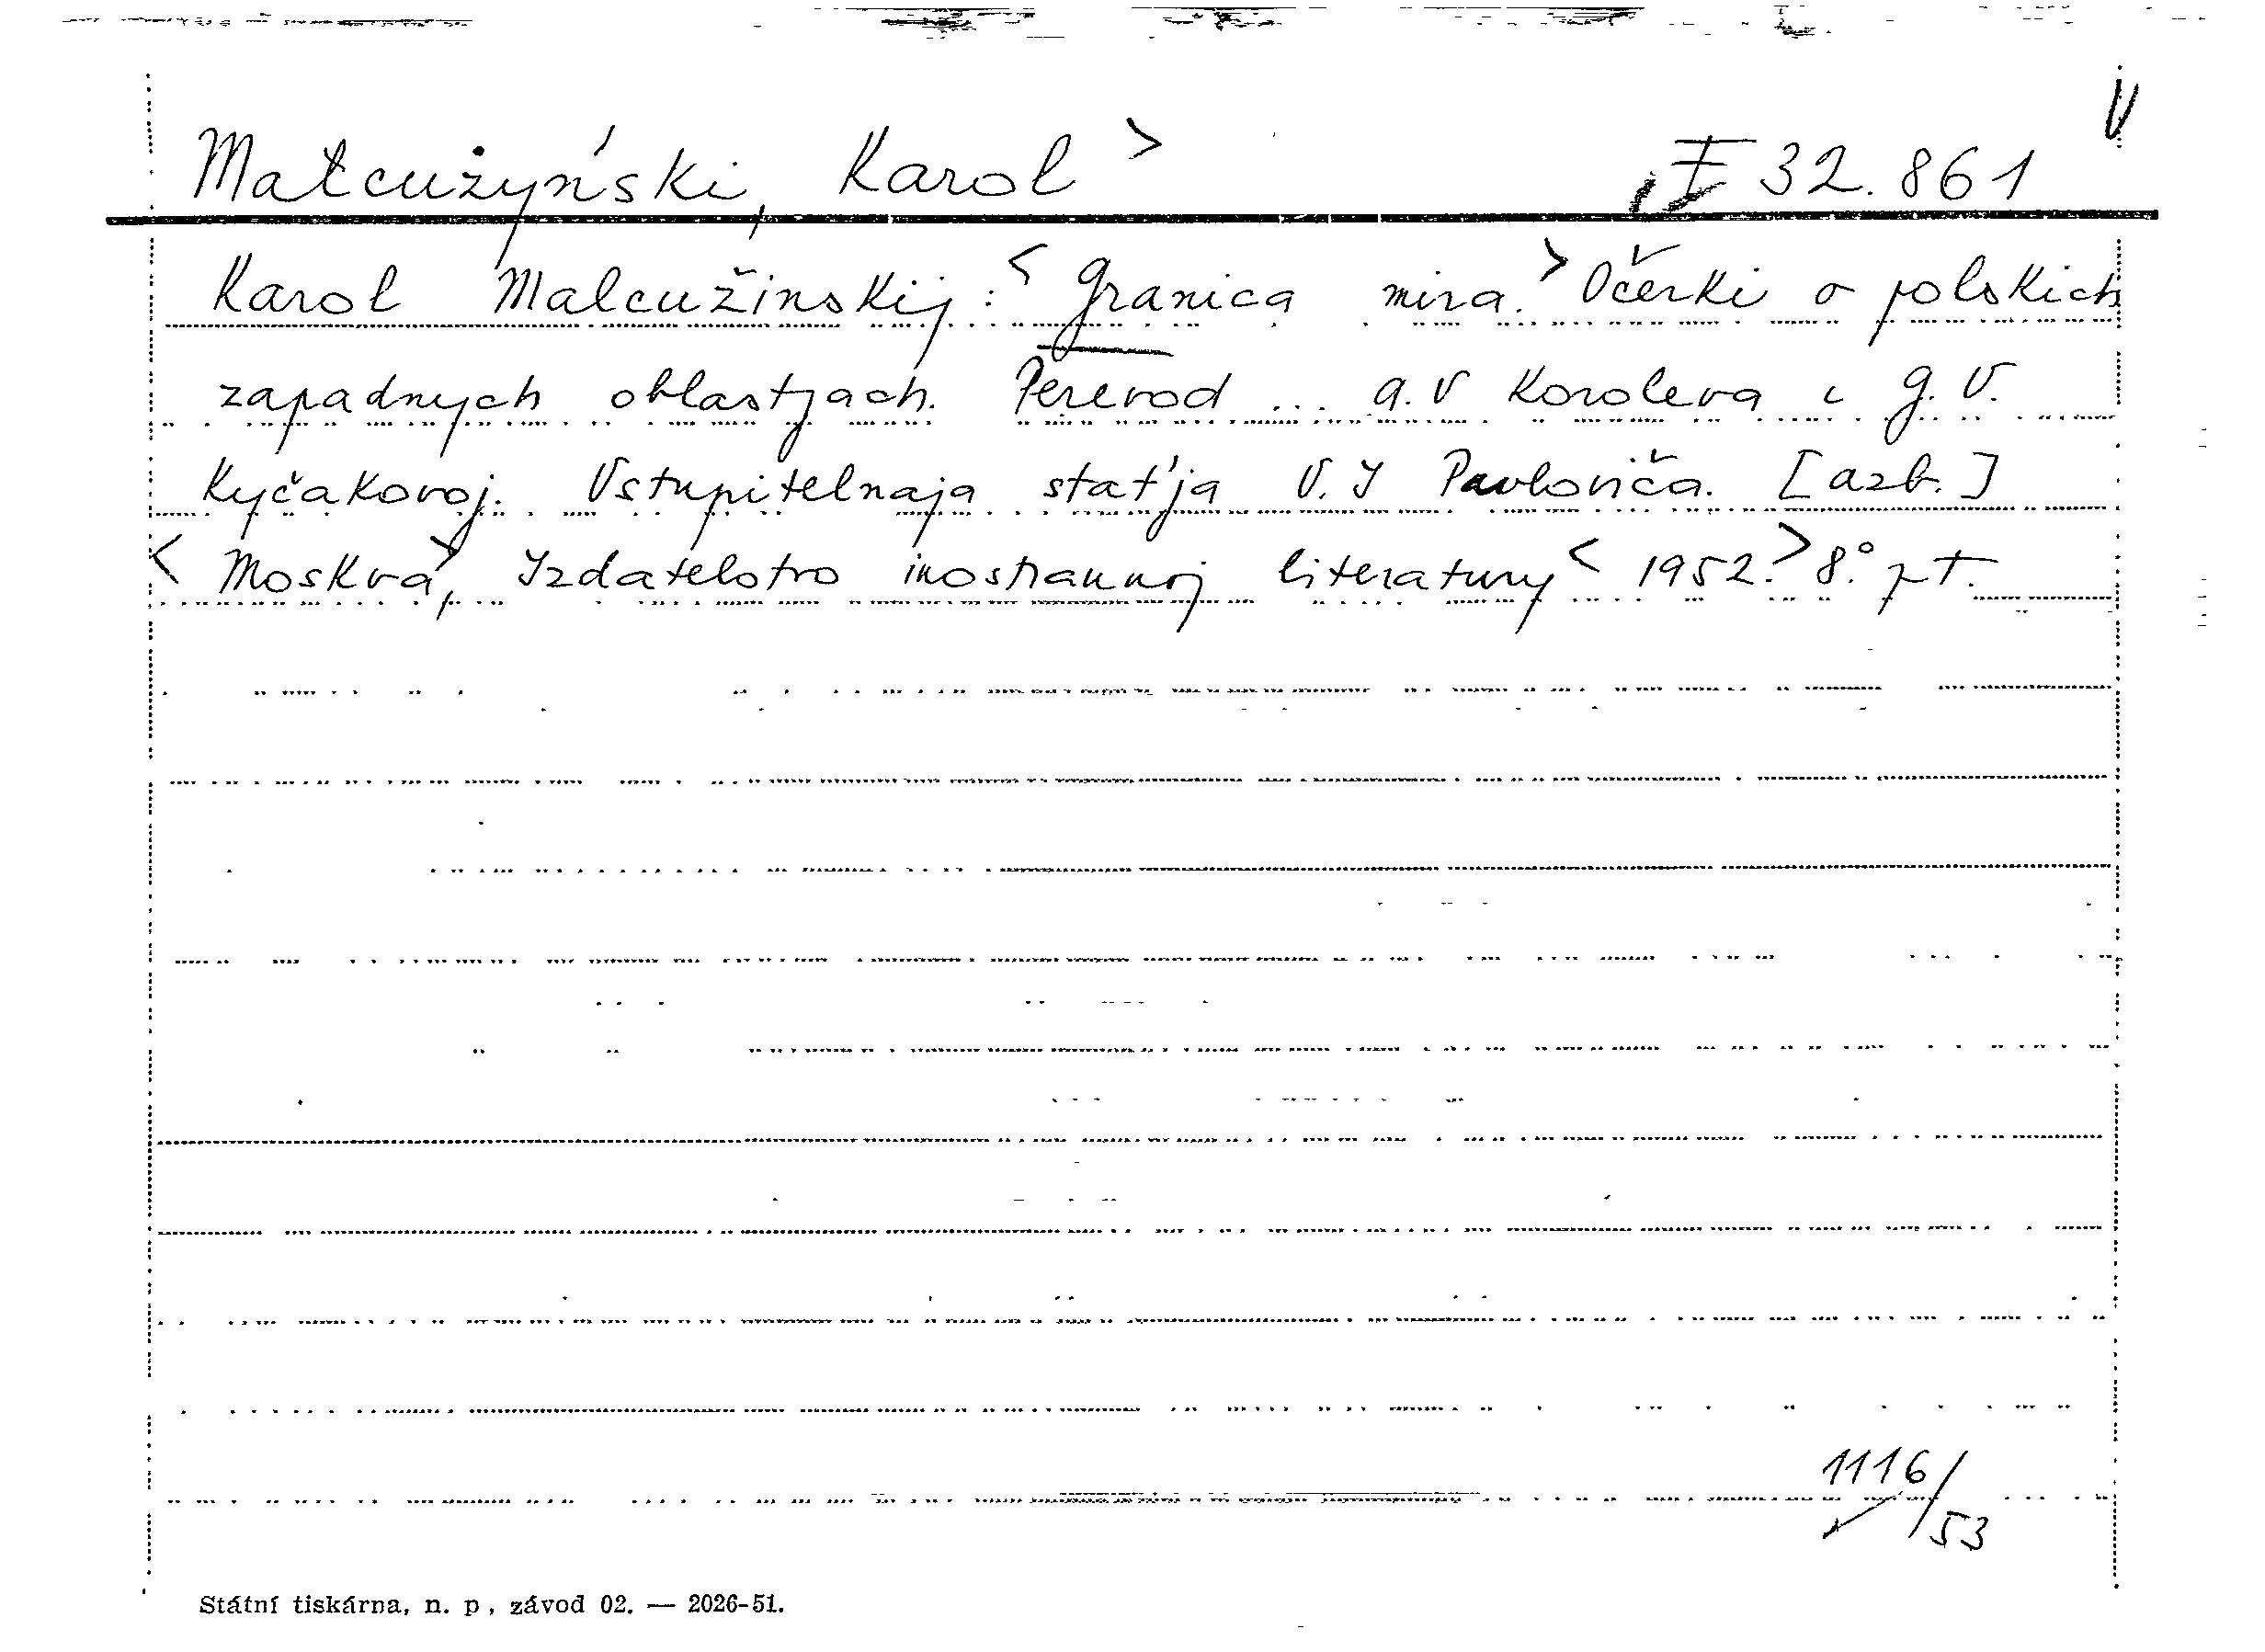 Małcużyński, Karol > I 32.861 V
Karol Malcužinskij: < Granica mira. > Očerki o polskich
zapadnych oblastjach. Perevod ... A. V Koroleva i G. V.
Kyčakovoj. Vstupitelnaja stat'ja V. I Pavloviča. [azb.]
< Moskva >, Izdatelstvo inostrannoj literatury < 1952. > 8.°
1116/53
Státní tiskárna, n. p, závod 02. — 2026-51.